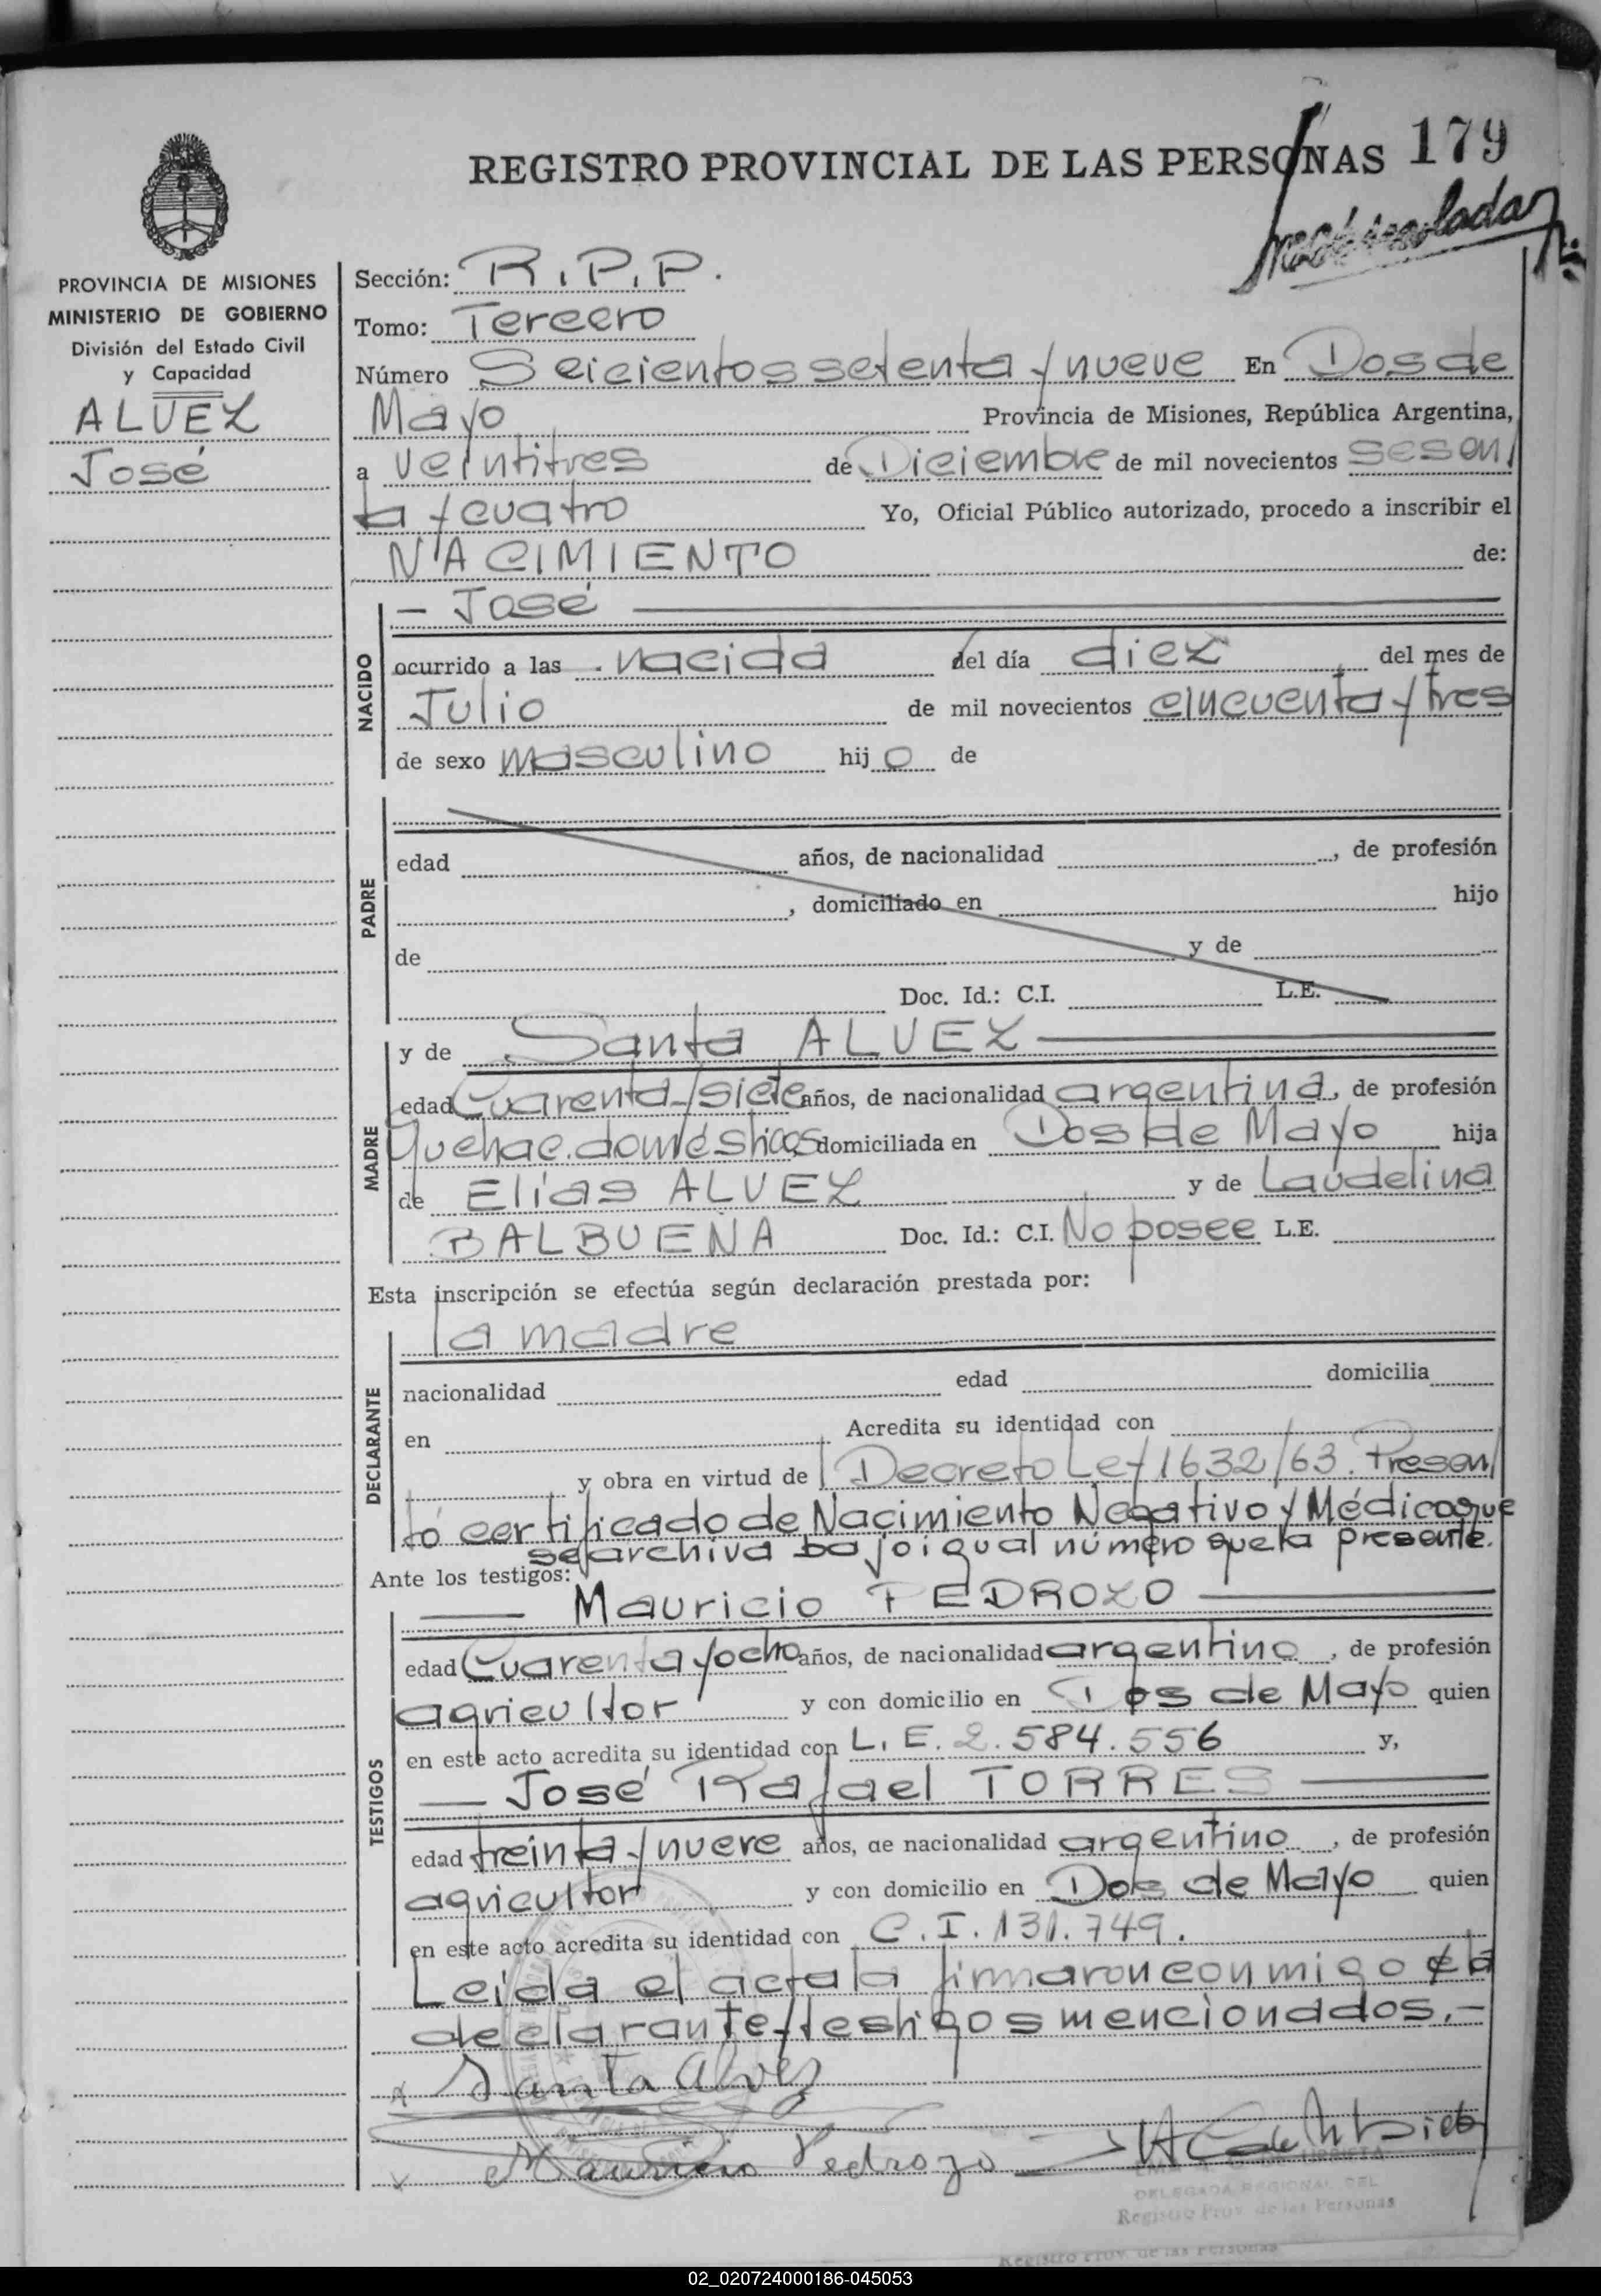 REGISTRO PROVINCIAL DE LAS PERSONAS 179
PROVINCIA DE MISIONES
MINISTERIO DE GOBIERNO
División del Estado Civil
y Capacidad
ALVEZ
José
Sección: R.P.P.
Tomo: Tercero
Número Seicientos setenta y nueve En Dos de
Mayo Provincia de Misiones, República Argentina,
a veintitres de Diciembre de mil novecientos sesen
ta y cuatro Yo, Oficial Público autorizado, procedo a inscribir el
NACIMIENTO de:
NACIDO
— José
ocurrido a las nacida del día diez del mes de
Julio de mil novecientos cincuenta y tres
de sexo masculino hij o de
PADRE
edad años, de nacionalidad , de profesión
, domiciliado en hijo
de y de
Doc. Id.: C.I. L.E.
MADRE
y de Santa ALVEZ
edad Cuarenta y siete años, de nacionalidad argentina, de profesión
Quehac. domésticos domiciliada en Dos de Mayo hija
de Elías ALVEZ y de Laudelina
BALBUENA Doc. Id.: C.I. No posee L.E.
Esta inscripción se efectúa según declaración prestada por:
DECLARANTE
la madre
nacionalidad edad domicilia
en Acredita su identidad con
y obra en virtud de Decreto Ley 1632/63. Presen
tó certificado de Nacimiento Negativo y Médico que
se archiva bajo igual número que la presente.
Ante los testigos:
TESTIGOS
— Mauricio PEDROZO —
edad Cuarenta y ocho años, de nacionalidad argentino, de profesión
agricultor y con domicilio en Dos de Mayo quien
en este acto acredita su identidad con L.E. 2.584.556 y,
— José Rafael TORRES —
edad treinta y nueve años, de nacionalidad argentino, de profesión
agricultor y con domicilio en Dos de Mayo quien
en este acto acredita su identidad con C.I. 131.749.
Leida el acta la firmaron conmigo la
declarante y testigos mencionados.-
Santa Alvez
Mauricio Pedrozo
DELEGADA REGIONAL DEL
Registro Prov. de las Personas
Registro Prov. de las Personas
02_020724000186-045053